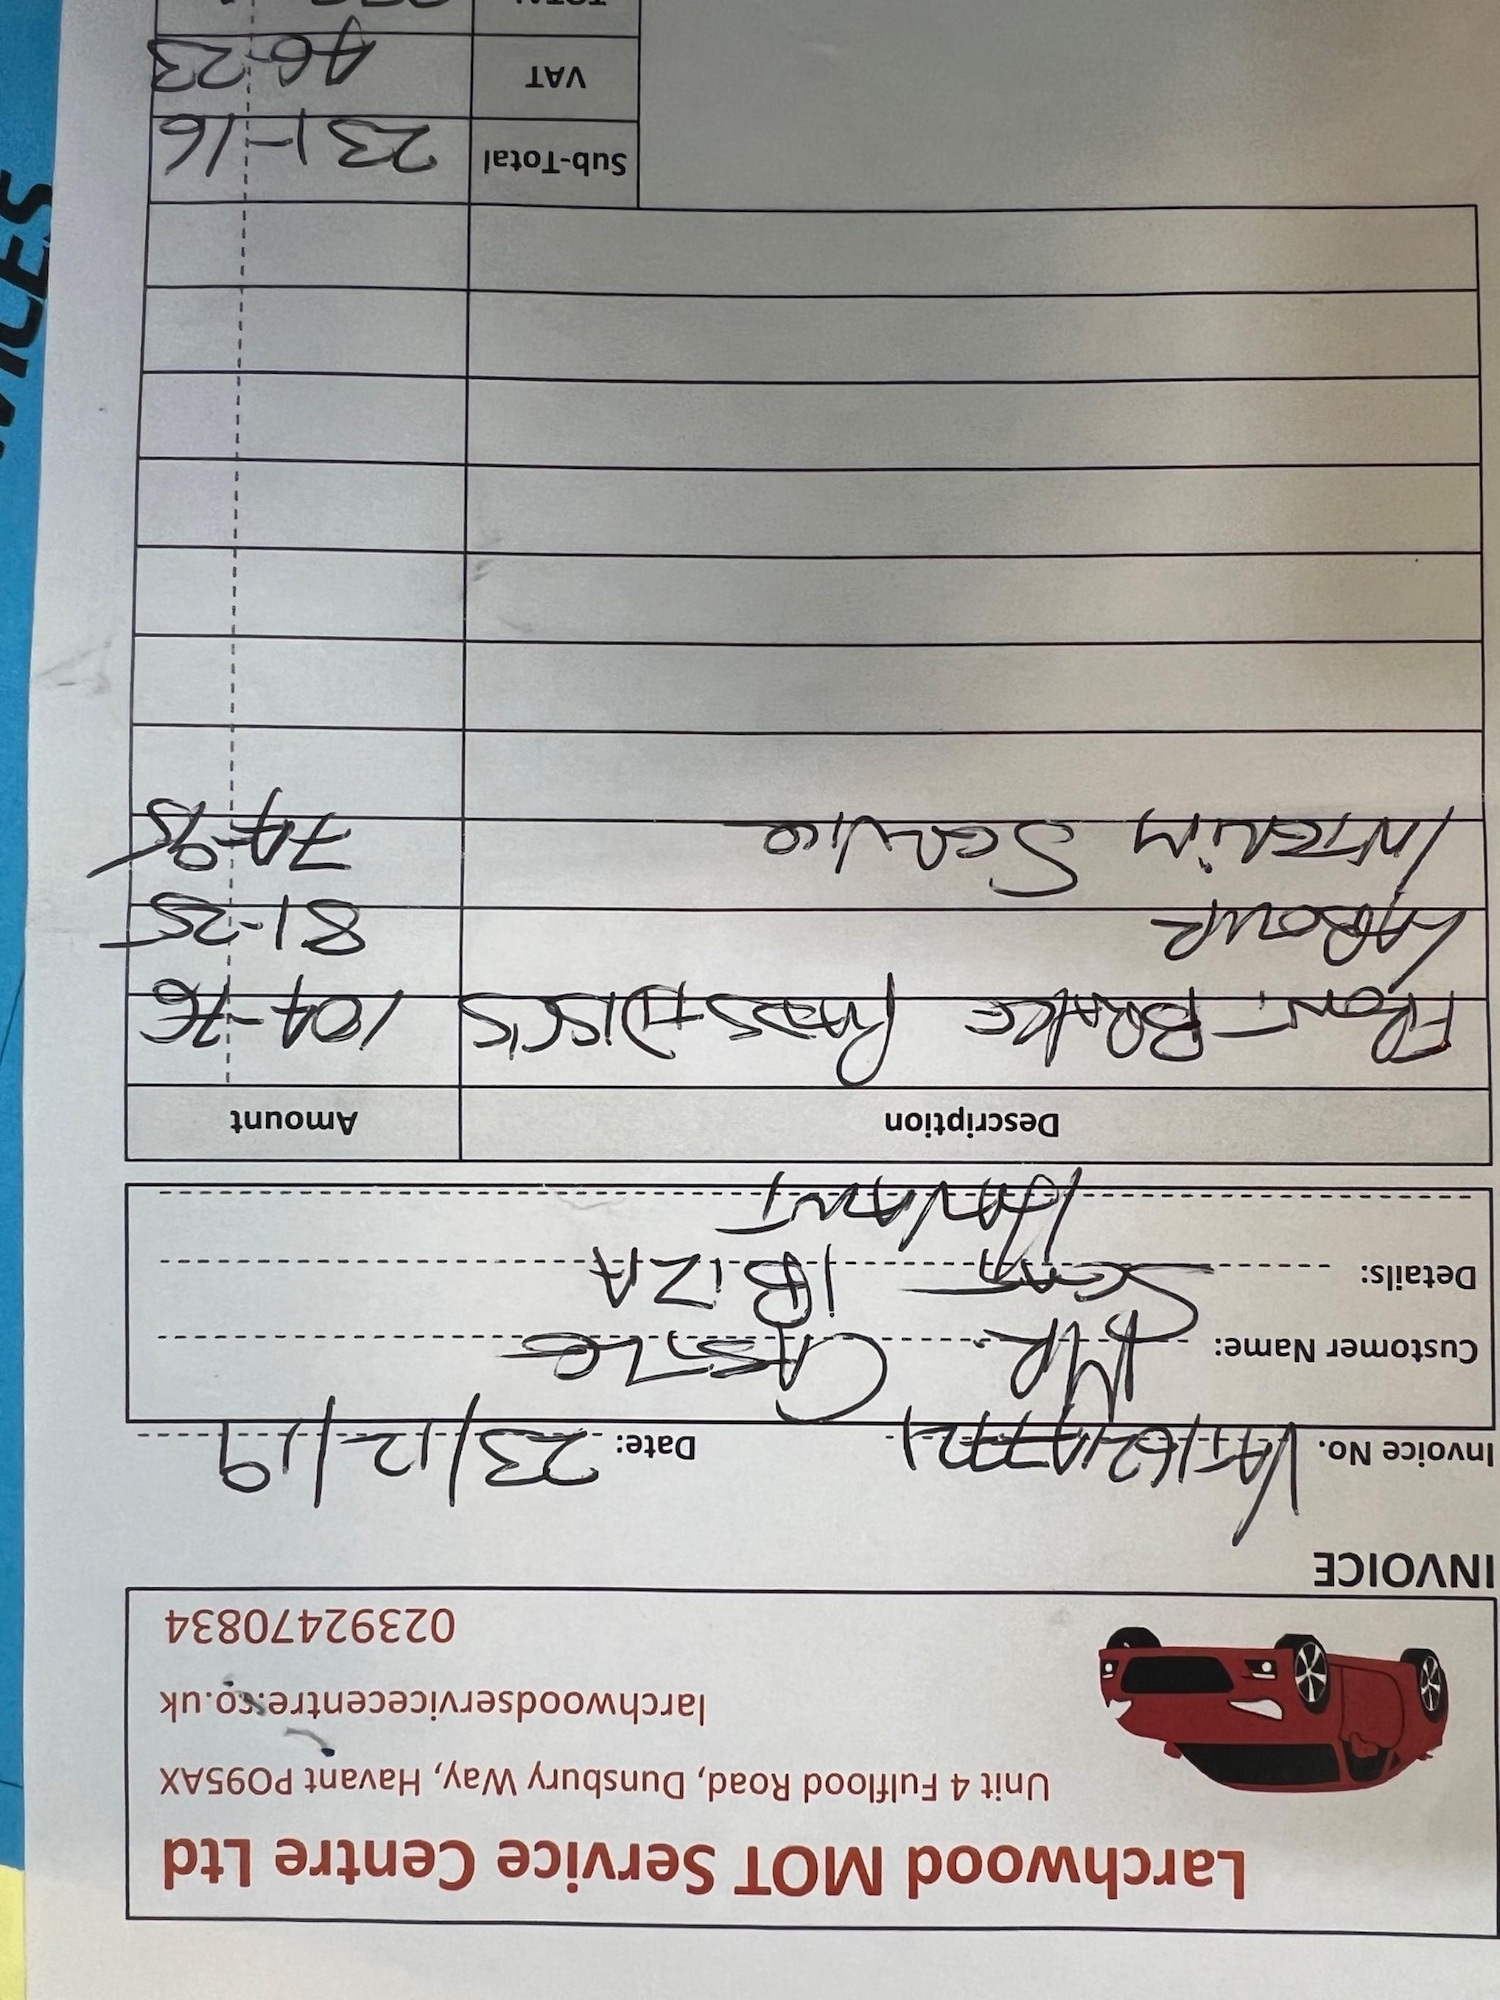 Larchwood MOT Service Centre Ltd
Unit 4 Fulflood Road, Dunsbury Way, Havant PO95AX
larchwoodservicecentre.co.uk
02392470834
INVOICE
Invoice No. Date: 23/12/19
Customer Name: MR. CASTLE
Details: SEAT IBIZA
HAVANT
Description Amount
FRONT BRAKE PADS + DISCS 104-76
LABOUR 81-25
INTERIM SERVICE 74-95
Sub-Total 231-16
VAT 46-23
TOTAL
VICES